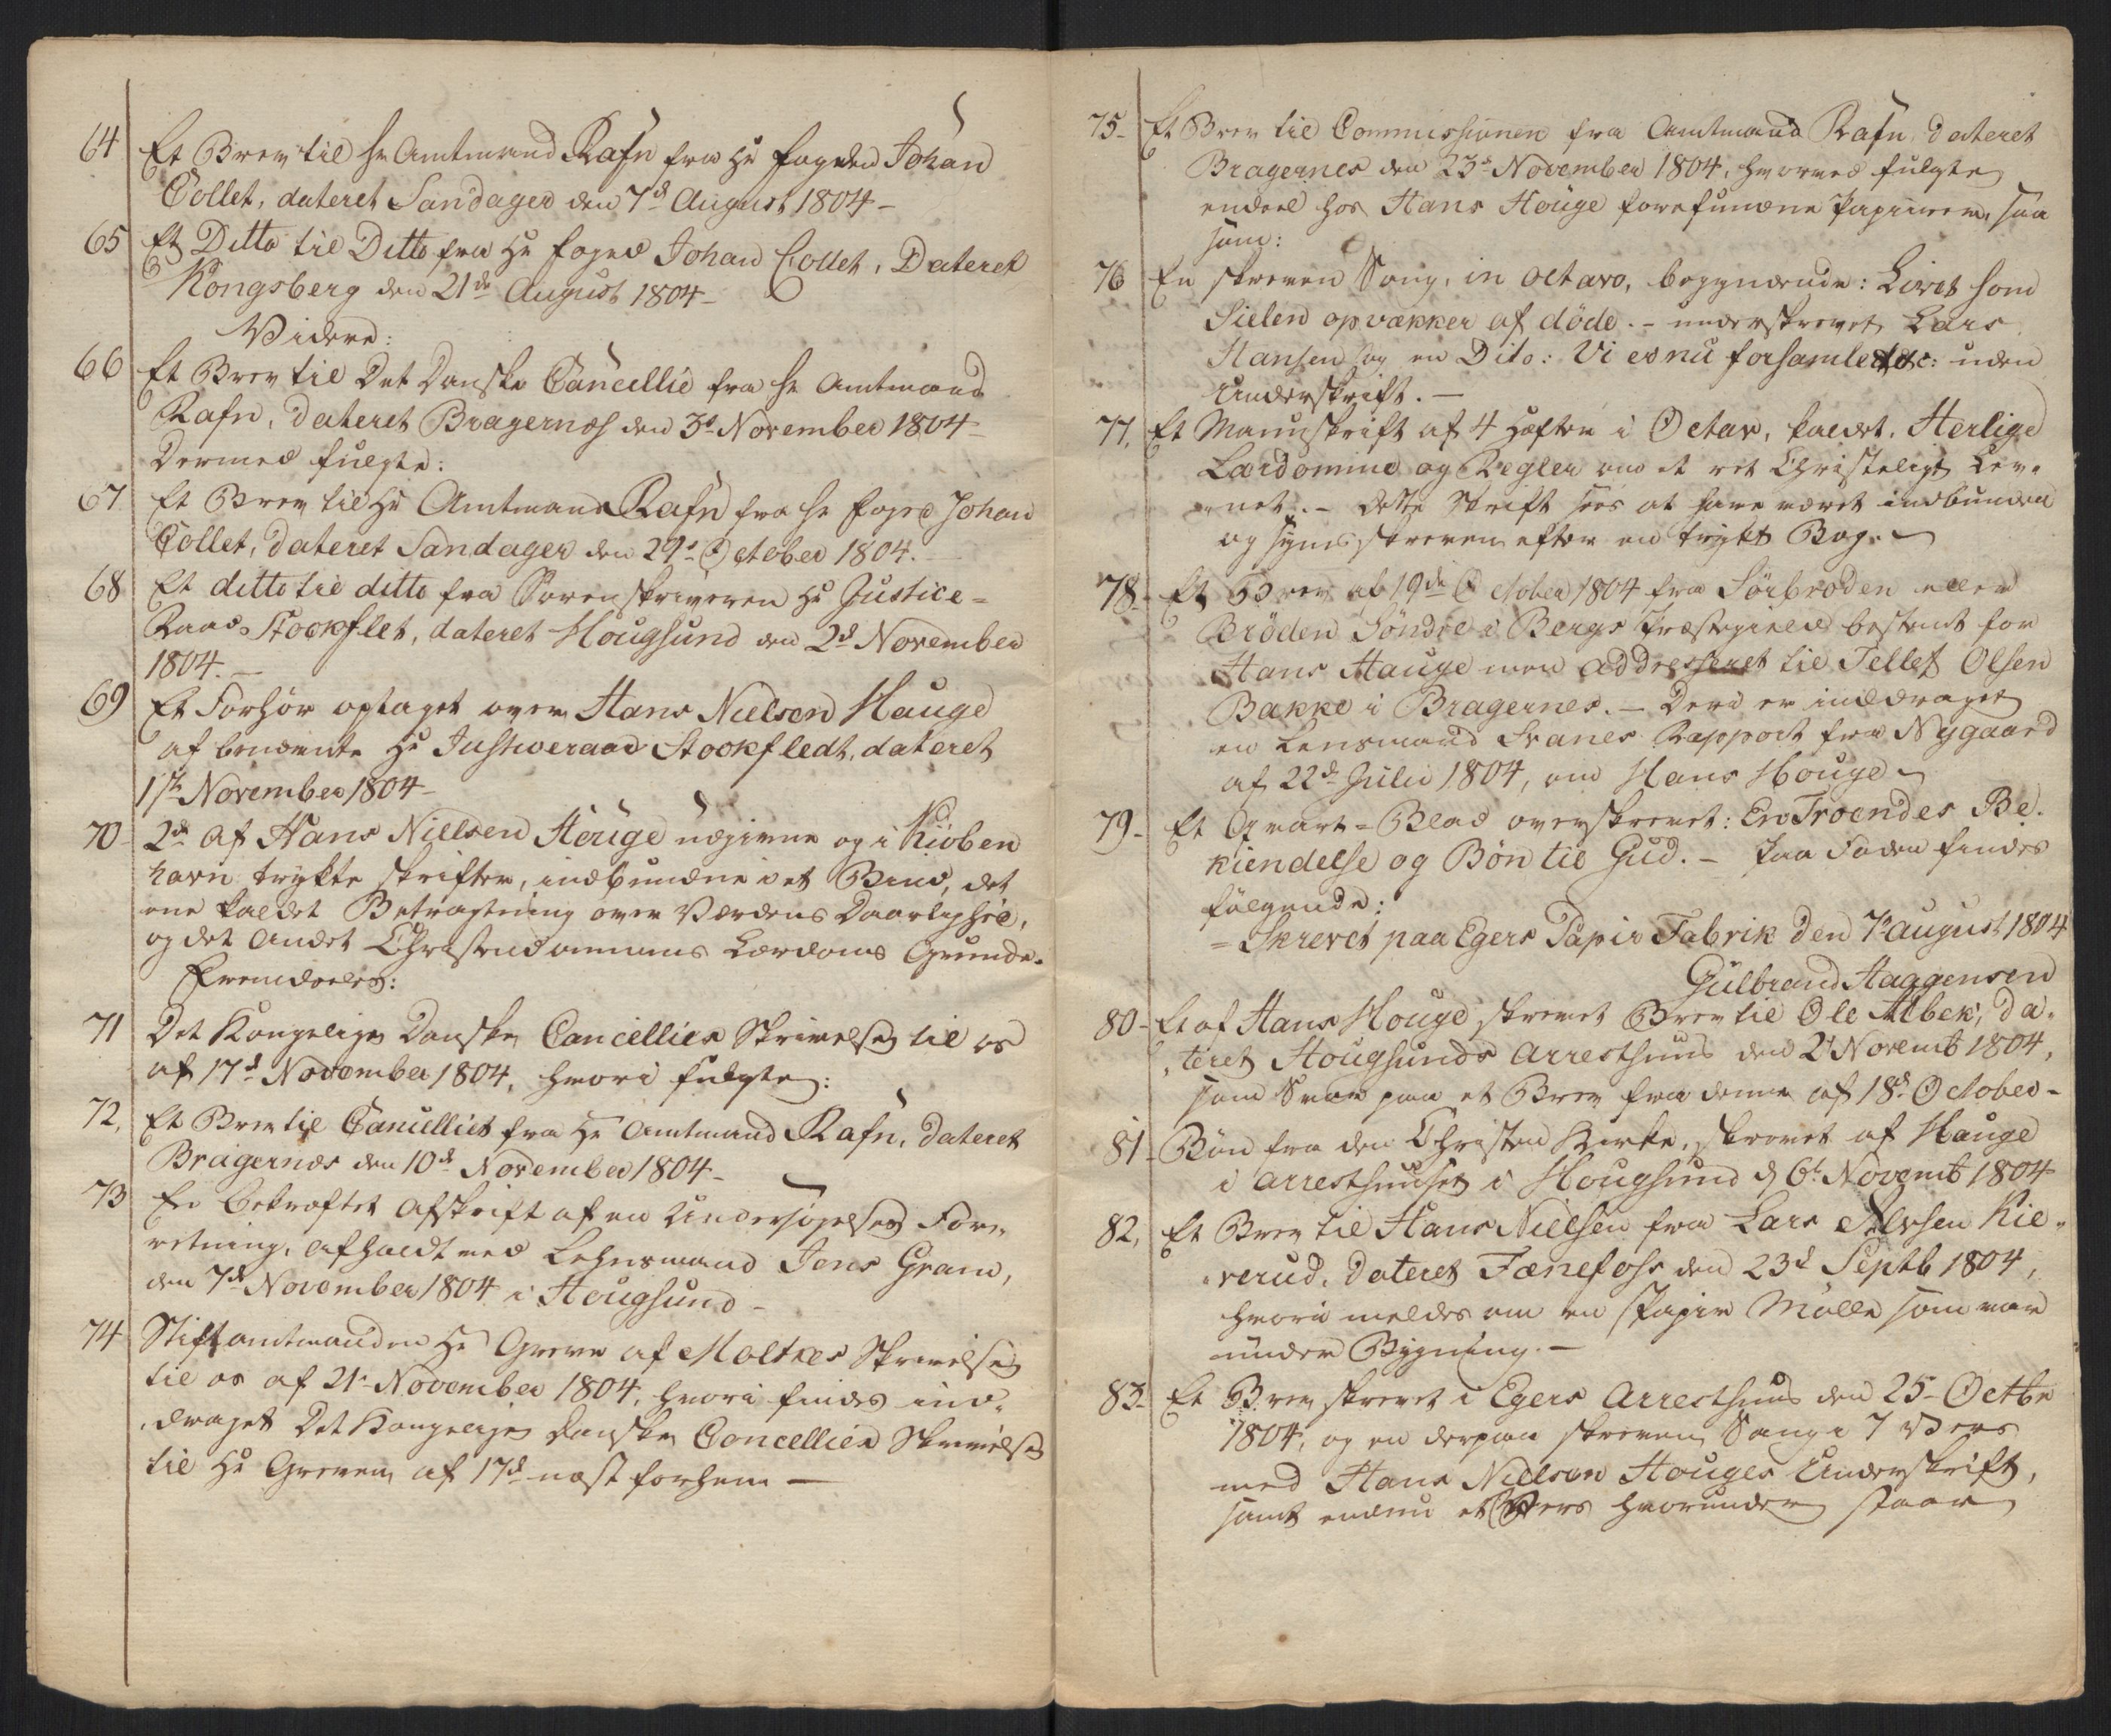 64 Et Brev til Hr Amtmand Rafn fra Hr Fogden Johan
Collet, dateret Sandager den 7d August 1804 –
65 Et Ditto til Ditto fra Hr Foged Johan Collet, Dateret
Kongsberg den 21de August 1804 –
Videre:
66 Et Brev til Det Danske Cancellie fra Hr Amtmand
Rafn, dateret Bragernæs den 3d November 1804 –
Dermed fulgte:
67 Et Brev til Hr Amtmand Rafn fra Hr Foged Johan
Collet, dateret Sandager den 29d October 1804.
68 Et ditto til ditto fra Sorenskriveren Hr Justice=
Raad Stockflet, dateret Hougsund den 2d November
1804. –
69 Et Forhör optaget over Hans Nielsen Hauge
af benævnte Hr Justiceraad Stockfledt, dateret
1ste November 1804 –
70 – 2de af Hans Niellsen Houge udgivne og i Kiöben
havn trykte skrifter, indbundne i et Bind, det
ene kaldet Betragtning over Verdens Daarlighed,
og det Andet Christendommens Lærdoms Grunde.
Fremdeeles:
71 Det Kongelige Danske Cancellies Skrivelse til os
af 17d November 1804, hvori fulgte:
72, Et Brev til Cancelliet fra Hr Amtmand Rafn, dateret
Bragernæs den 10d November 1804 –
73 En bekræftet Afskrift af en Undersögelses For-
retning, afholdt ved Lehnsmand Jens Gram,
den 7d November 1804 i Hougsund –
74 Stiftamtmanden Hr Greve af Moltkes Skrivelse
til os af 21d November 1804, hvori findes ind-
draget Det Kongelige Danske Cancellies Skrivelse
til Hr Greven af 17d næst forhen —
75 – Et Brev til Commissionen fra Amtmand Rafn, dateret
Bragernes den 23d November 1804, hvorved fulgte
endeel hos Hans Houge forefundne Papiirer, saa
som:
76 En skreven Sang, in octavo, begyndende: Livet som
Sielen opvækker af döde. – underskrevet Lars
Hansen, og en Dito: Vi er nu forsamlet &c: uden
Underskrift. –
77, Et Manuskrift af 4 Hæfter i Octav, kaldet, Herlige
Lærdomme og Regler om et ret Christeligt Lev-
net. – Dette Skrift sees at have været indbunden
og synes skreven efter en trykt Bog. –
78 – Et Brev af 19de October 1804 fra Sörbröden eller
Bröden Söndre i Bergs Præstegield bestemt for
Hans Hauge men addresseret til Tellef Olsen
Bakke i Bragernes. – Deri er inddraget
en Lensmand Svanes Rapport fra Nygaard
af 22d Julii 1804, om Hans Houge –
79 – Et Qvart=Blad overskrevet: En Troendes Be-
kiendelse og Bön til Gud. – Paa Foden findes
fölgende:
= Skrevet paa Egers Papir Fabrik den 7d august 1804
Gulbrand Haggensen
80 – Et af Hans Houge skrevet Brev til Ole Albek, da-
teret Hougsunds Arresthuus den 2d Novemb 1804,
som Svar paa et Brev fra denne af 18d October –
81 – Bön fra den Christen Kirke, skrevet af Hauge
i Arresthuuset i Hougsund d 6t Novemb 1804
82, Et Brev til Hans Nielsen fra Lars Kie-
verud, dateret Fænefoss den 23d Septb 1804,
hvori meldes om en Papir Mölle som var
under Bygning. –
83 – Et Brev skrevet i Egers Arresthuus den 25 – Octbr
1804, og en derpaa skreven Sang i 7 Vers
med Hans Nielsen Houges Underskrift,
samt endnu et Vers hvorunder staar